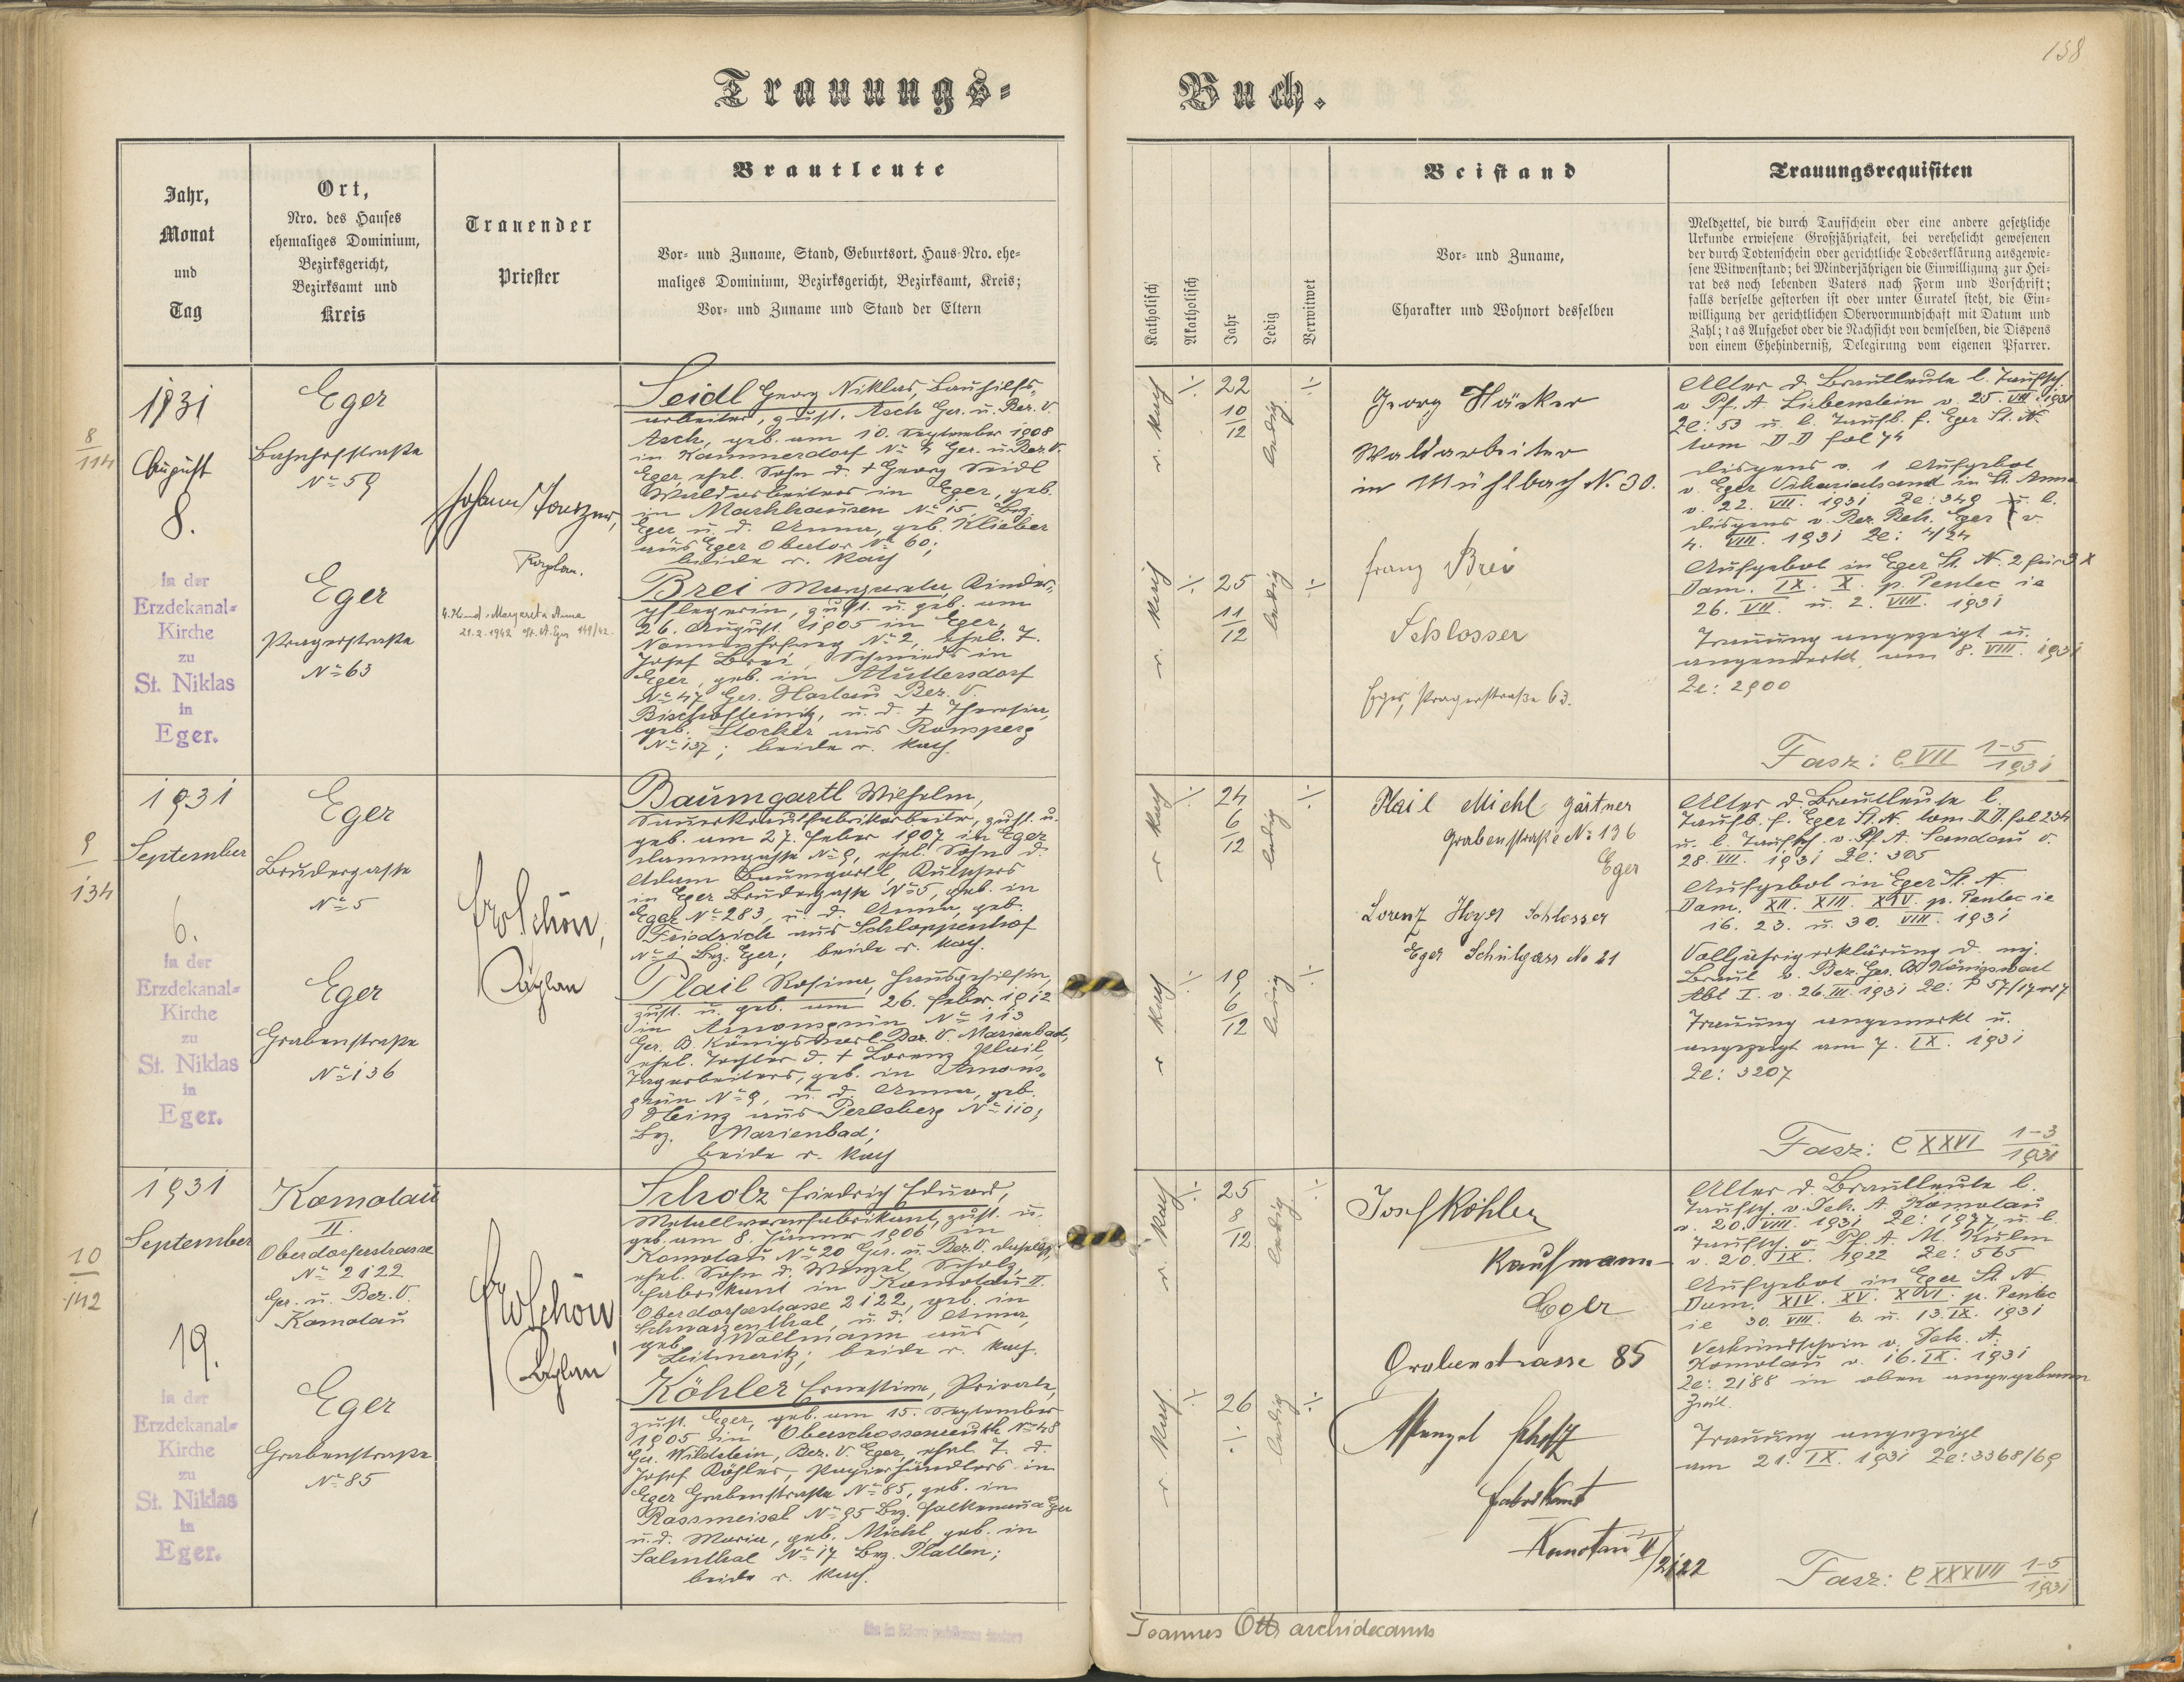 158
Trauungs-
Buch.
Jahr,
Monat
und
Tag
Ort,
Nro. des Hauses
ehemaliges Dominium,
Bezirksgericht,
Bezirksamt und
Kreis
Trauender
Priester
Brautleute
Vor- und Zuname, Stand, Geburtsort, Haus-Nro. ehe-
maliges Dominium, Bezirksgericht, Bezirksamt, Kreis;
Vor- und Zuname und Stand der Eltern
Katholisch
Akatholisch
Jahr
Ledig
Verwitwet
Beistand
Vor- und Zuname,
Charakter und Wohnort desselben
Trauungsrequisiten
Meldzettel, die durch Taufschein oder eine andere gesetzliche
Urkunde erwiesene Großjährigkeit, bei verehelicht gewesenen
der durch Todtenschein oder gerichtliche Todeserklärung ausgewie-
sene Witwenstand; bei Minderjährigen die Einwilligung zur Hei-
rat des noch lebenden Vaters nach Form und Vorschrift;
falls derselbe gestorben ist oder unter Curatel steht, die Ein-
willigung der gerichtlichen Obervormundschaft mit Datum und
Zahl; das Aufgebot oder die Nachsicht von demselben, die Dispens
von einem Ehehinderniß, Delegirung vom eigenen Pfarrer.
8
114
1931
August
8.
In der
Erzdekanal-
Kirche
zu
St. Niklas
in
Eger.
Eger
Bahnhofstraße
No 59
Eger
Pragerstraße
No 63
Johann
Kaplan.
4. Kind: Margareta Anna
21.2.1942 St. N. Eger 149/42
Seidl Georg Niklas, Bauhilfs-
arbeiter, zust. Asch Ger. u. Bez. V.
Asch, geb. am 10. September 1908
in Kammerdorf No 4 Ger. u. Bez. V.
Eger, ehel. Sohn d. † Georg Seidl
Waldarbeiters in Eger, geb.
in Markhausen No 15, Bez.
Eger u. d. Anna, geb. Klieber
aus Eger Obertor No 60;
beide r. kath
Brei Margareta, Kinder-
pflegerin, zust. u. geb. am
26. August 1905 in Eger,
No 2, ehel. T.
Josef Brei, Schmieds in
Eger, geb. in Muttersdorf
No 47 Ger. Hostau Bez. V.
Bischofteinitz, u. d. † Theresia,
geb. Stocker aus Ronsperg
No 137; beide r. kath.
r. kath
÷
22
10
12
ledig
÷
r. kath
÷
25
11
12
ledig
÷
Georg Häcker
Waldarbeiter
in Mühlbach N. 30.
Franz Brei
Schlosser
Eger, Pragerstraße 63.
Alter d. Brautleute l. Taufsch.
v. Pf. A. Liebenstein v. 25. VII. 1931
Ze: 53 u. l. Taufb. f. Eger St. N.
tom II D fol 74
Dispens v. 1 Aufgebot
v. Eger Vikariatsamt in St. Anna
v. 22. VII. 1931 Ze: 349 u. l.
Dispens v. Bez. Beh. Eger v.
4. VIII. 1931 Ze: 4/24
Aufgebot in Eger St. N. 2 für 3 X
Dom. IX. X. p. Pentec ie
26. VII. u. 2. VIII. 1931
Trauung angezeigt u.
angemerkt am 8. VIII. 1931
Ze: 2900
Fasz: C VII 1-5
1931
9
134
1931
September
6.
In der
Erzdekanal-
Kirche
zu
St. Niklas
in
Eger.
Eger
Brudergasse
No 5
Eger
Grabenstraße
No 136
Schön,
Kaplan
Baumgartl Wilhelm,
Sauerkrautfabrikarbeiter, zust. u.
geb. am 27. Feber 1907 in Eger
Dammgasse No 9, ehel. Sohn d.
Adam Baumgartl,
in Eger Brudergasse No 5, geb. in
Eger No 283, u. d. Anna, geb.
Friedrich aus Schloppenhof
No 1 Bez. Eger; beide r. kath.
Plail Rosina, Hausgehilfin,
zust. u. geb. am 26. Feber 1912
in Amonsgrün No 113
Ger. B. Königswart Bez. V. Marienbad,
ehel. Tochter d. † Lorenz Plail,
Tagarbeiters, geb. in Amons-
grün No 9, u. d. Anna, geb.
Heinz aus Perlsberg No 110,
Bez. Marienbad;
beide r. kath
r kath
÷
24
6
12
ledig
÷
r kath
÷
19
6
12
ledig
÷
Plail Michl Gärtner
Grabenstraße No 136
Eger
Lorenz Hoyer Schlosser
Eger Schulgass No 21
Alter d. Brautleute l.
Taufb. f. Eger St. N. tom II D. fol 234
u. l. Taufsch. v. Pf. A. Sandau v.
28. VII. 1931 Ze: 305
Aufgebot in Eger St. N.
Dom. XII. XIII. XIV. p. Pentec ie
16. 23. u. 30. VIII. 1931
Volljährigerklärung d. mj.
Braut v. Bez. Ger. B. Königswart
Abt I. v. 26. III. 1931 Ze: P 57/17
Trauung angemerkt u.
angezeigt am 7. IX. 1931
Ze: 3207
Fasz: C XXVI 1-3
1931
10
142
1931
September
19.
In der
Erzdekanal-
Kirche
zu
St. Niklas
in
Eger.
Komotau
II.
Oberdorferstrasse
No 2122
Ger. u. Bez. V.
Komotau
Eger
Grabenstraße
No 85
Schön,
Kaplan
Scholz Friedrich Eduard,
Metallwarenfabrikant, zust. u.
geb. am 8. Jänner 1906 in
Komotau No 20 Ger. u. Bez. V. daselbst,
ehel. Sohn d. Wenzel Scholz,
Fabrikant in Komotau II.
Oberdorferstrasse 2122, geb. in
Schwarzenthal, u. d. Anna,
geb. Wollmann aus
Leitmeritz; beide r. kath.
Köhler Ernestine, Private,
zust. Eger, geb. am 15. September
1905 in Oberschossenreuth No 48
Ger. Wildstein, Bez. V. Eger, ehel. T. d.
Josef Köhler, Papierhändlers in
Eger Grabenstraße No 85, geb. in
Rossmeisel No 95 Bez. Falkenau a Eger
u. d. Maria, geb. Michl, geb. in
Salmthal No 17 Bez. Platten;
beide r. kath.
r. kath
÷
25
8
12
ledig
÷
r. kath.
÷
26
÷
ledig
÷
Josef Köhler
Kaufmann
Eger
Grabenstrasse 85
Wenzel Scholz
Fabrikant
Komotau II/2122
Alter d. Brautleute l.
Taufsch. v. Dek. A. Komotau
v. 20. VIII. 1931 Ze: 1977 u. l.
Taufsch. v. Pf. A. M. Kulm
v. 20. IX. 1922 Ze: 565
Aufgebot in Eger St. N.
Dom. XIV. XV. XVI. p. Pentec
ie 30. VIII. 6. u. 13. IX. 1931
Verkündschein v. Dek. A.
Komotau v. 16. IX. 1931
Ze: 2188 in oben angegebenen
Zeit.
Trauung angezeigt
am 21. IX. 1931 Ze: 3368/69
Fasz: C XXXVII 1-5
1931
Joannes Ott archidecanus